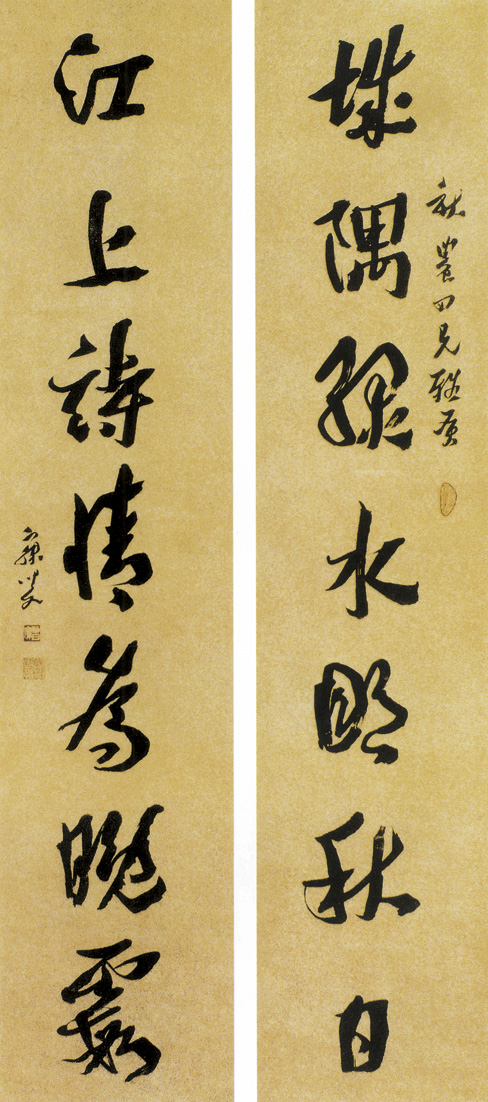 城隅綠水明秋日
秋農四兄雅
江上詩情為晚霞